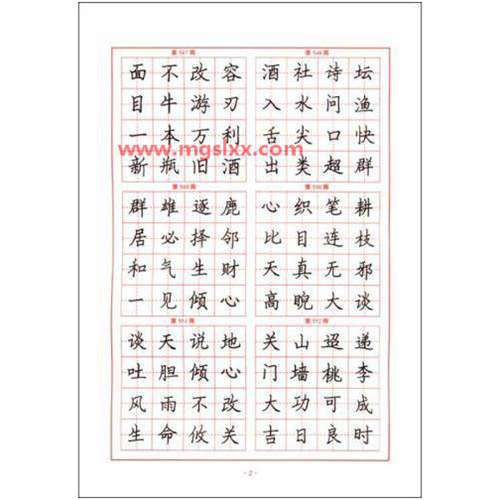 面不改容
目牛游刃
一本万利
新瓶旧酒
酒社诗坛
入水问渔
舌尖口快
出类超群
www.mgsixx.com
群雄逐鹿
居必择邻
和气生财
一见倾心
心织笔耕
比目连枝
天真无邪
高睨大谈
谈天说地
吐胆倾心
风雨不改
生命攸关
关山迢递
门墙桃李
大功可成
吉日良时
- 2 -